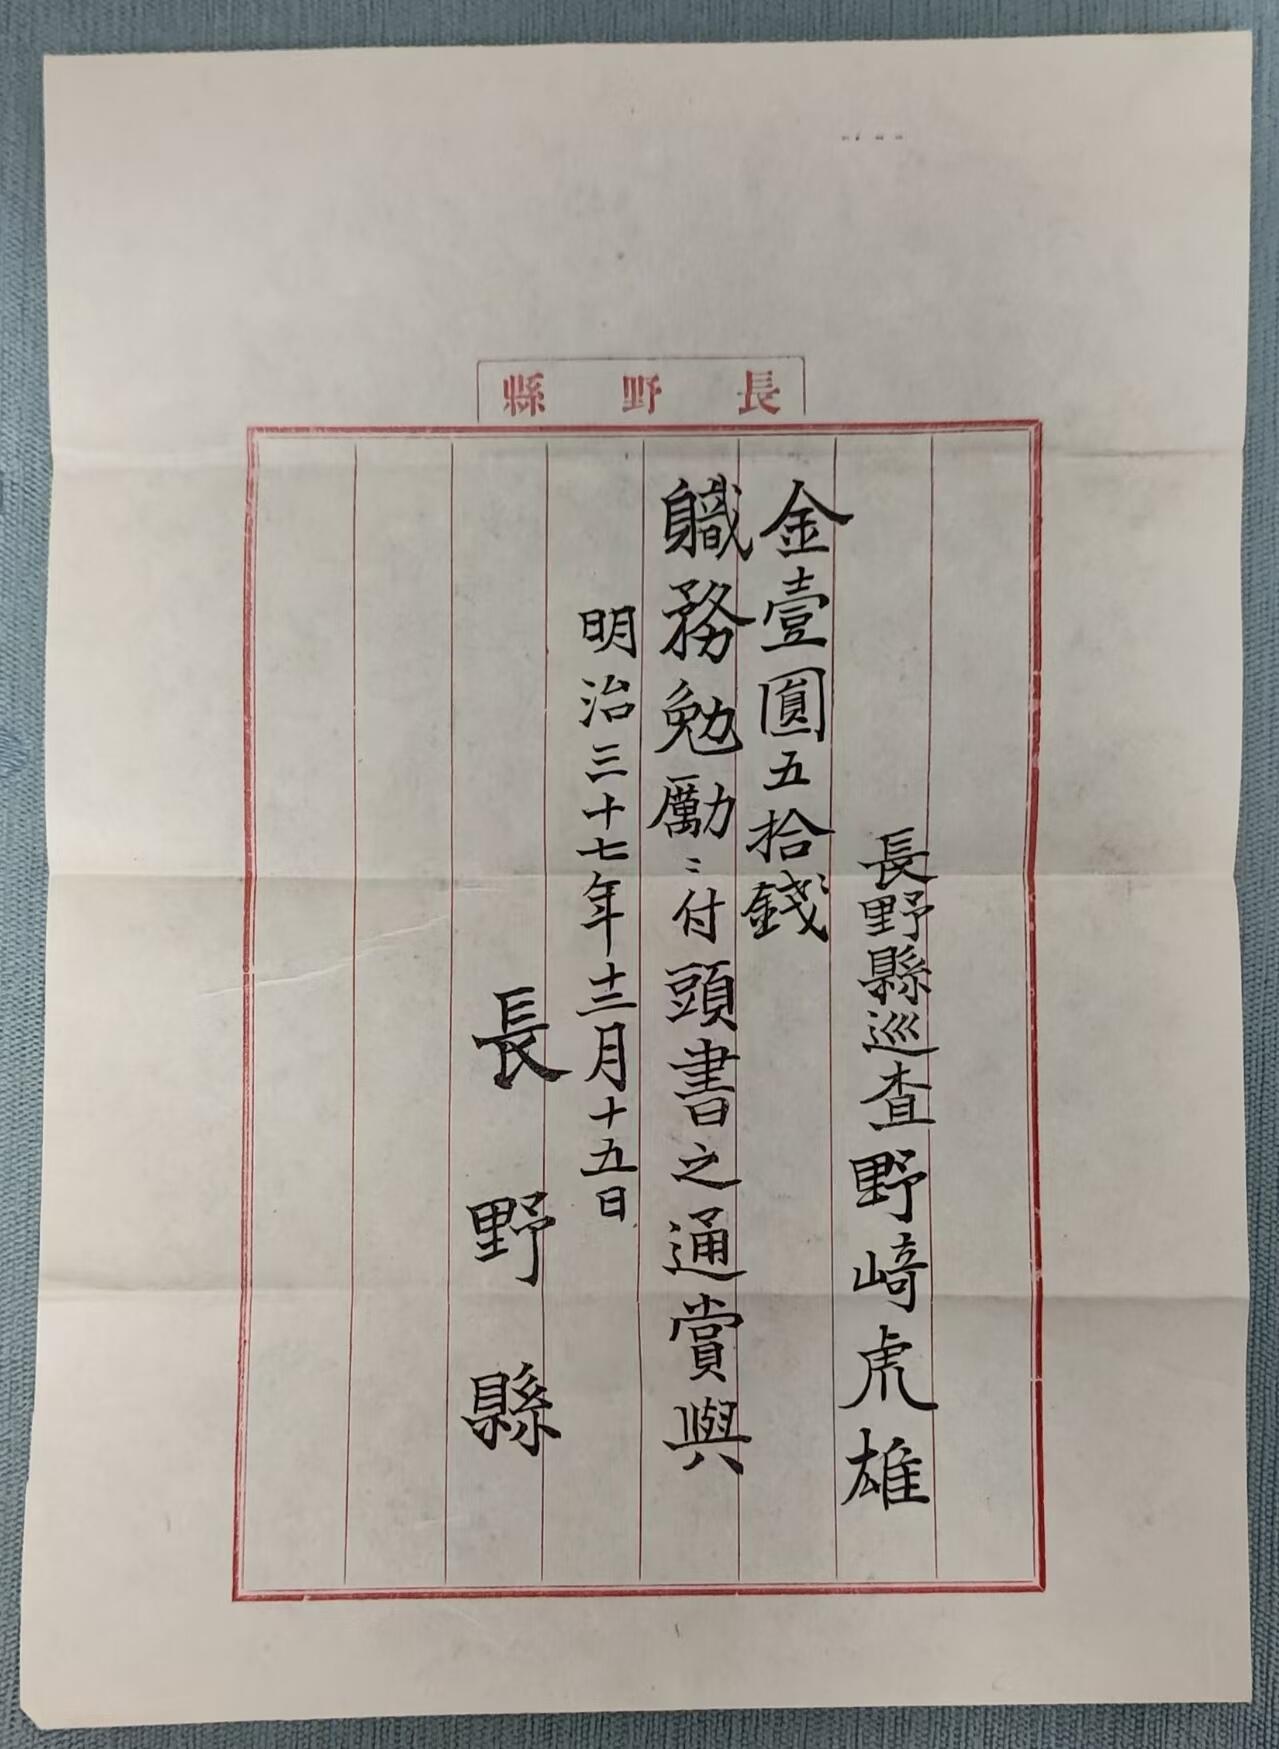 長野縣
長野縣巡査野﨑虎雄
金壹圓五拾錢
職務勉勵ニ付頭書之通賞與
明治三十七年十二月十五日
長野縣